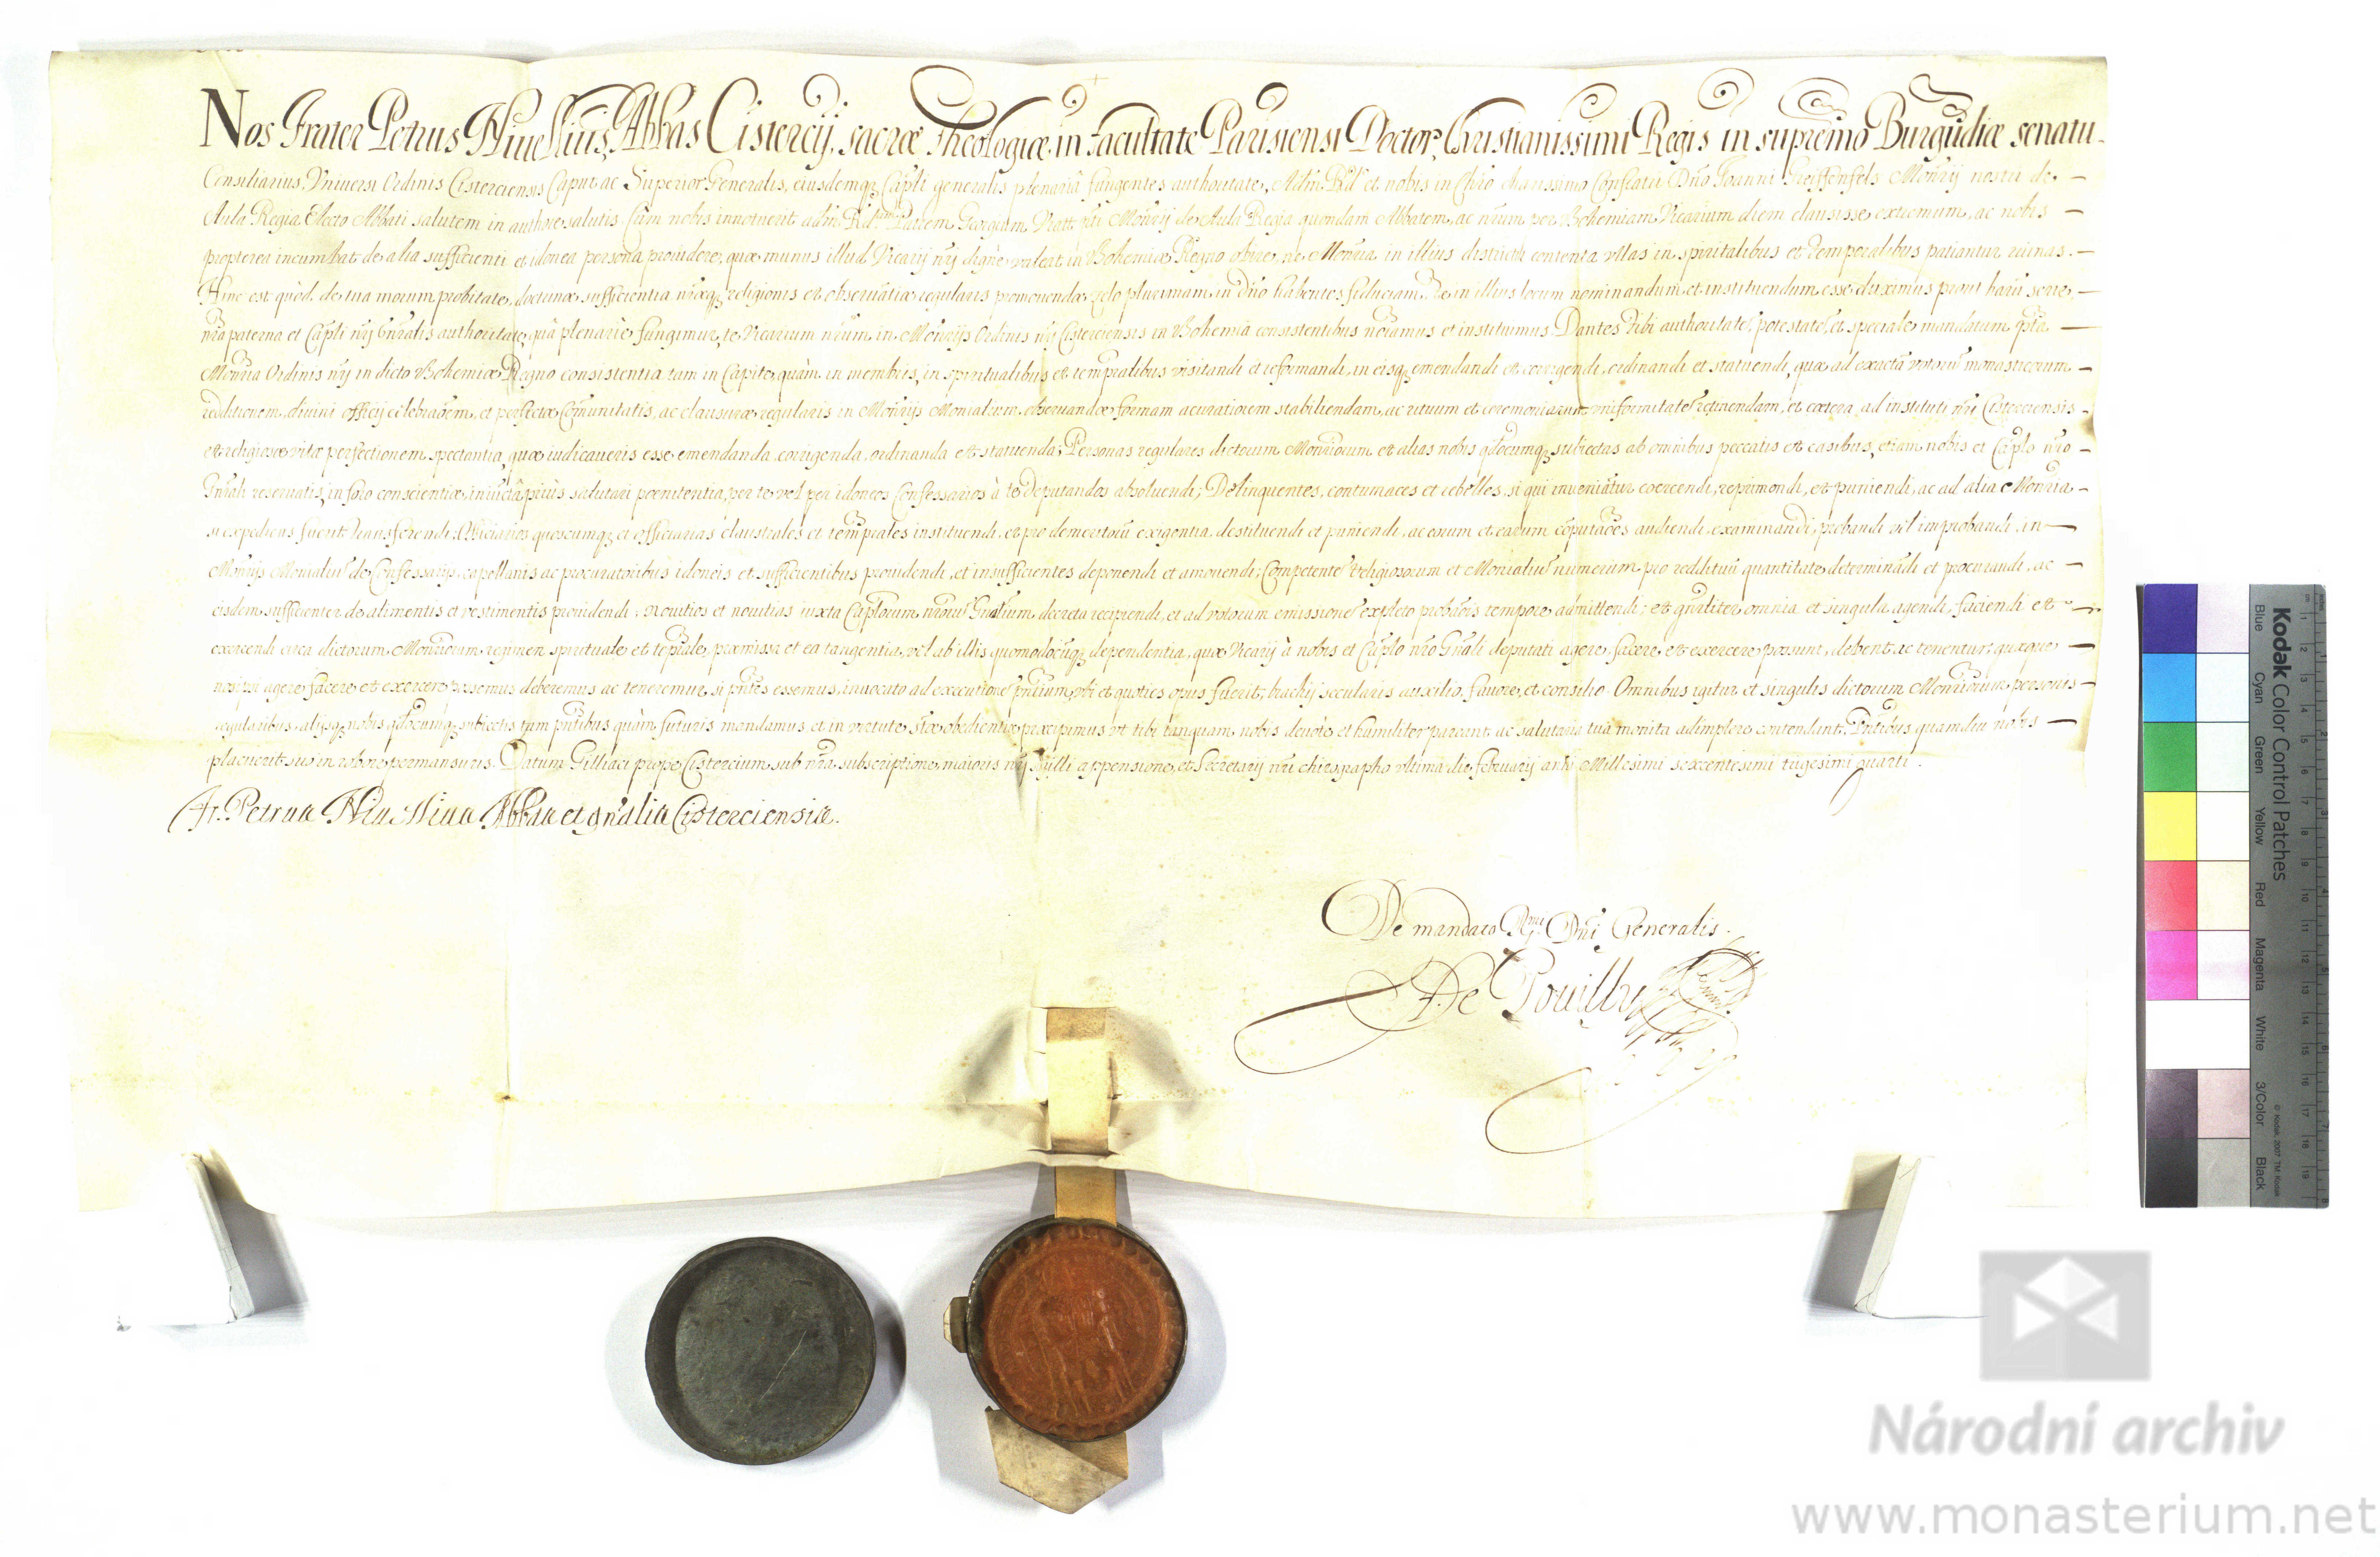 Nos Frater Petrus Niuellius, Abbas Cistercij, sacræ Theologiæ in facultate Parisiensi Doctor, Christianissimi Regis in supremo Burgudiæ senatu
Consiliarius, Vniuersi Ordinis Cisterciensis Caput ac Superior Generalis, eiusdemq3 Capli generalis plenariâ fungentes authoritate, Adm Rdo et nobis in Chro charissimo Confratri Dno Joanni Greiffenfels Monrij nostri de
Aula Regia Electo Abbati salutem in authore salutis. Cùm nobis innotuerit adm Rdum Patrem Georgium Vratt nri Monrij de Aula Regia quondam Abbatem, ac nrum per Bohemiam Vicarium diem clausisse extremum, ac nobis
propterea incumbat de alia sufficienti et idonea persona prouidere, quæ munus illud Vicarij nri dignè valeat in Bohemiæ Regno obire, ne Monria in illius districtu contenta vllas in spiritalibus et temporalibus patiantur ruinas.
Hinc est quòd de tua morum probitate, doctrinæ sufficientia nræq3 religionis et obseruatiæ regularis promouendæ zelo plurimam in Dno habentes fiduciam, Te in illius locum nominandum et instituendum esse duximus prout harū serie,
nrâ paterna et Capli nri Gnralis authoritate, quâ plenariè fungimur, te Vicarium nrum in Monrijs Ordinis nri Cisterciensis in Bohemia consistentibus noiamus et instituimus. Dantes tibi authoritatē, potestatē, et speciale mandatum
Monria Ordinis nri in dicto Bohemiæ Regno consistentia tam in Capite, quàm in membris, in spiritualibus et tempralibus visitandi et reformandi, in eisq3 emendandi et corrigendi, ordinandi et statuendi, quæ ad exactā votorū monasticorum
redditionem, diuini officij celebraōem, et perfectæ Comunitatis, ac clausuræ regularis in Monrijs Monialium obseruandæ formam acuratiorem stabiliendam, ac rituum et ceremoniarum vniformitatē retinendam, et cætera ad instituti nri Cisterciensis
et religiosæ vitæ perfectionem spectantia, quæ iudicaueris esse emendanda, corrigenda, ordinanda et statuenda; Personas regulares dictorum Monriorum et alias nobis qdocumq3 subiectas ab omnibus peccatis et casibus, etiam nobis et Caplo nro
Gnrali reseruatis, in foro conscientiæ, iniūctâ priùs salutari pœnitentia, per te vel per idoneos Confessarios à te deputandos absoluendi; Delinquentes, contumaces et rebelles, si qui inueniātur coercendi, reprimendi, et puniendi, ac ad alia Monria
si expediens fuerit transferendi; Officiarios quoscumq3 et officiarias claustrales et tempralés instituendi, et pro demeritorū exigentia destituendi et puniendi, ac eorum et earum cōputaōes audiendi, examinandi, probandi vel improbandi, in
Monrijs Monialiū de Confessarijs, capellanis ac procuratoribus idoneis et sufficientibus prouidendi, et insufficientes deponendi et amouendi; Competentē Religiosorum et Monialiū numerum pro reddituū quantitate determinādi et procurandi, ac
eisdem sufficienter de alimentis et vestimentis prouidendi; Nouitios et nouitias iuxta Caplorum nrorū Gnralium decreta recipiendi, et ad votorum emissionē expleto probaōis tempore admittendi; et gnraliter omnia et singula agendi, faciendi et
exercendi circa dictorum Monriorum regimen spirituale et tēprale, præmissa et ea tangentia, vel ab illis quomodocūq3 dependentia, quæ Vicarij à nobis et Caplo nro Gnrali deputati agere, facere et exercere possunt, debent ac tenentur; quæque
nosipsi agere facere et exercere possemus deberemus ac teneremur, si pntes essemus, inuocato ad executionē pntium, vbi et quoties opus fuerit, brachij secularis auxilio, fauore, et consilio. Omnibus igitur et singulis dictorum Monriorum personis
regularibus, alijsq3 nobis qdocumq3 subiectis tam pntibus quàm futuris mandamus et in virtute stæ obedientiæ præcipimus vt tibi tanquam nobis deuotè et humiliter pareant ac salutaria tua monita adimplere contendant, Pntibus quamdiu nobis
placuerit suo in robore permansuris. Datum Gilliaci prope Cistercium sub nra subscriptione, maioris nri sigilli appensione, et Secretarij nri chirographo vltima die februarij anni Millesimi sexcentesimi trigesimi quarti.
Fr. Petrus Niuellius Abbas et gnralis Cisterciensis.
De mandato Rmi Dni Generalis.
F. De Pouilly
Kodak Color Control Patches
Blue Cyan Green Yellow Red Magenta White 3/Color Black
© Kodak, 2007 TM: Kodak
Národní archiv
www.monasterium.net